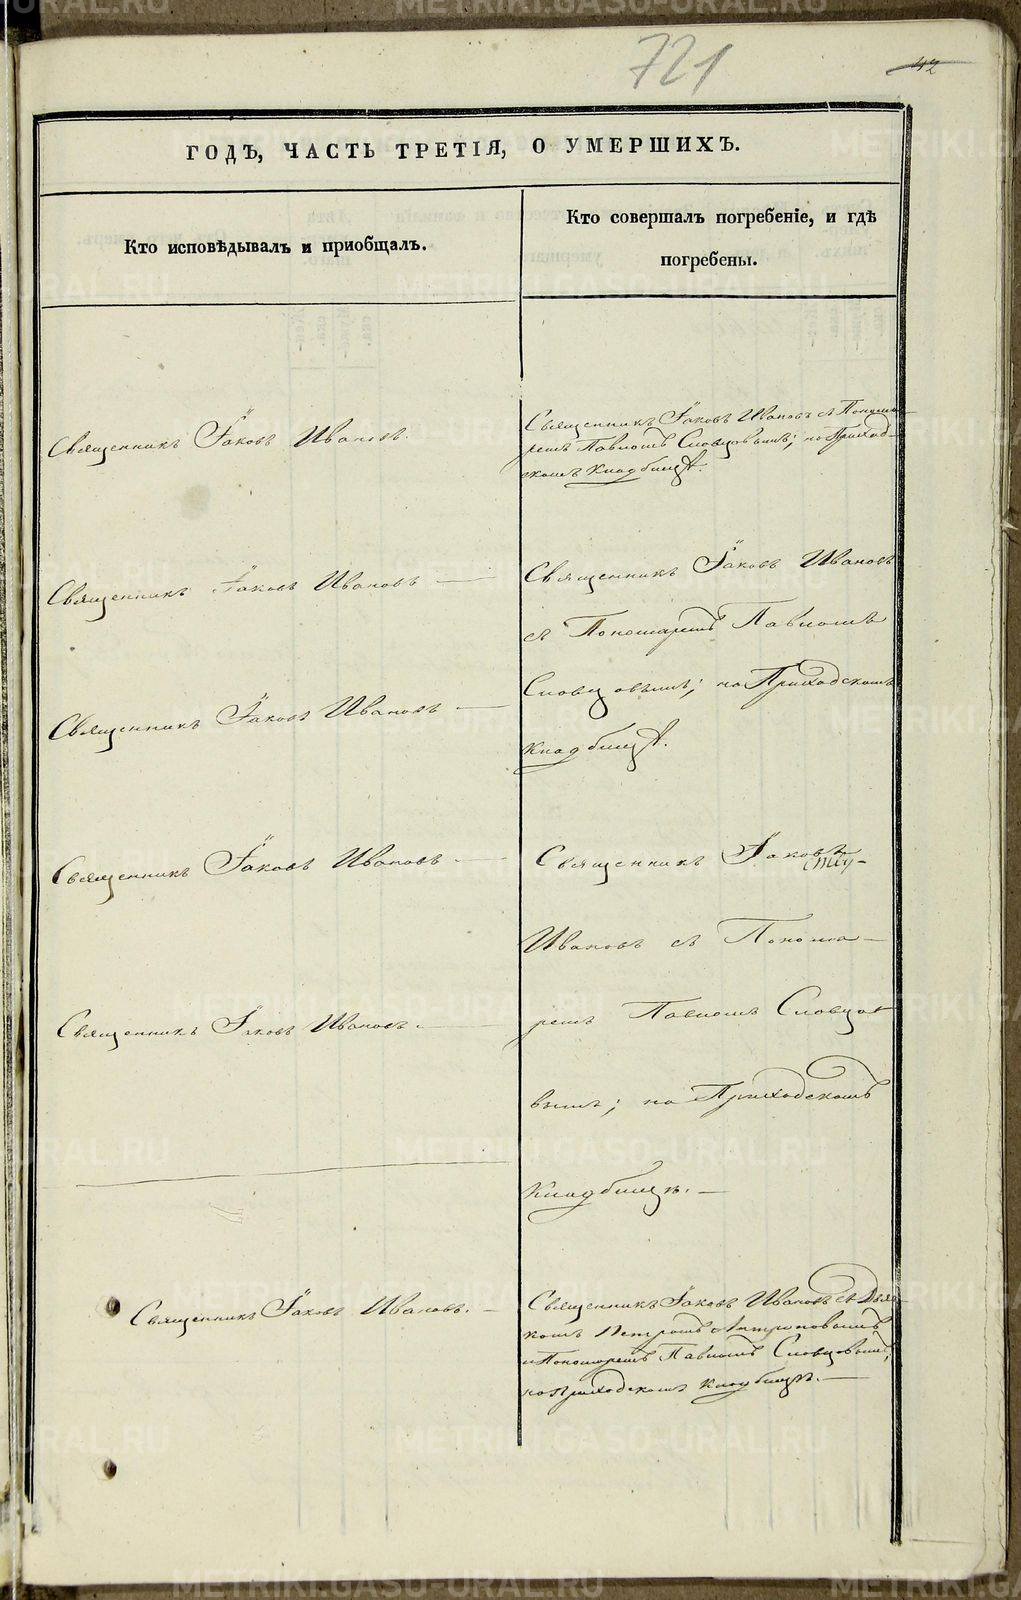 721
42
ГОДЪ, ЧАСТЬ ТРЕТІЯ, О УМЕРШИХЪ.
Кто исповѣдывалъ и приобщалъ.
Кто совершалъ погребеніе, и гдѣ
погребены.
Священникъ Іаковъ Ивановъ.
Священникъ Іаковъ Ивановъ съ Понома-
ремъ Павломъ Словцовымъ; на Приход-
скомъ Кладбищѣ.
Священникъ Іаковъ Ивановъ —
Священникъ Іаковъ Ивановъ
съ Пономаремъ Павломъ
Словцовымъ; на Приходскомъ
Кладбищѣ.
Священникъ Іаковъ Ивановъ —
Священникъ Іаковъ Ивановъ —
Священникъ Іаковъ
Ивановъ съ Понома-
ремъ Павломъ Словцо-
вымъ; на Приходскомъ
Кладбищѣ. —
Священникъ Іаковъ Ивановъ. —
Священникъ Іаковъ Ивановъ. —
Священникъ Іаковъ Ивановъ съ Дья-
комъ Петромъ Антроповымъ
и Пономаремъ Павломъ Словцовымъ,
на Приходскомъ Кладбищѣ. —
METRIKI.GASO-URAL.RU